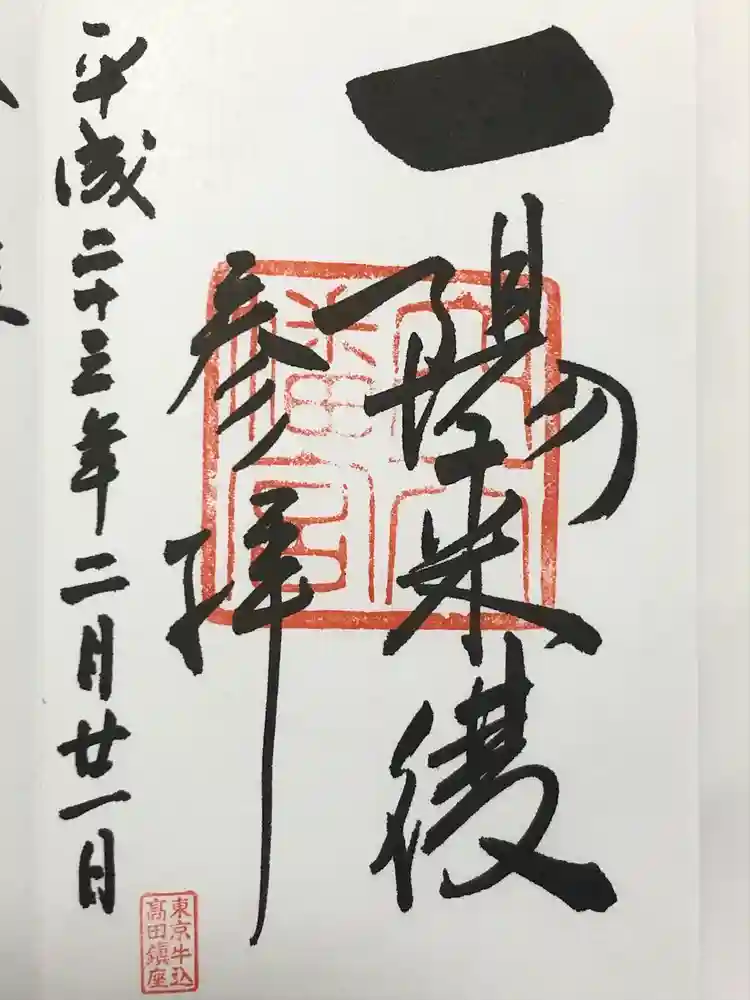 一陽来復
穴八
幡宮
参拝
平成二十三年二月廿一日
東京牛込
高田鎮座